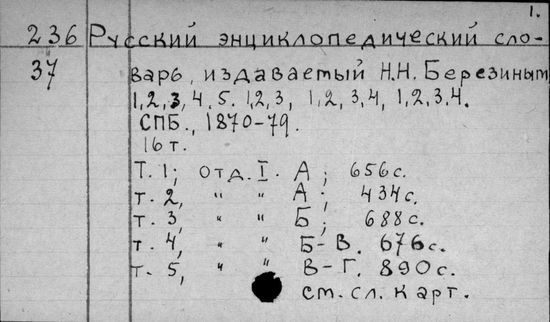 1.
236 Русский энциклопедический сло-
37 варь, издаваемый Н.Н. Березиным
1, 2, 3, 4. 5. 1, 2, 3, 1, 2, 3, 4, 1, 2, 3, 4.
СПБ., 1870-79.
16 т.
Т. 1; отд. I. А; 656 с.
т. 2, " " А; 434 с.
т. 3, " " Б; 688 с.
т. 4, " " Б-В. 676 с.
т. 5, " " В-Г. 890 с.
см. сл. карт.